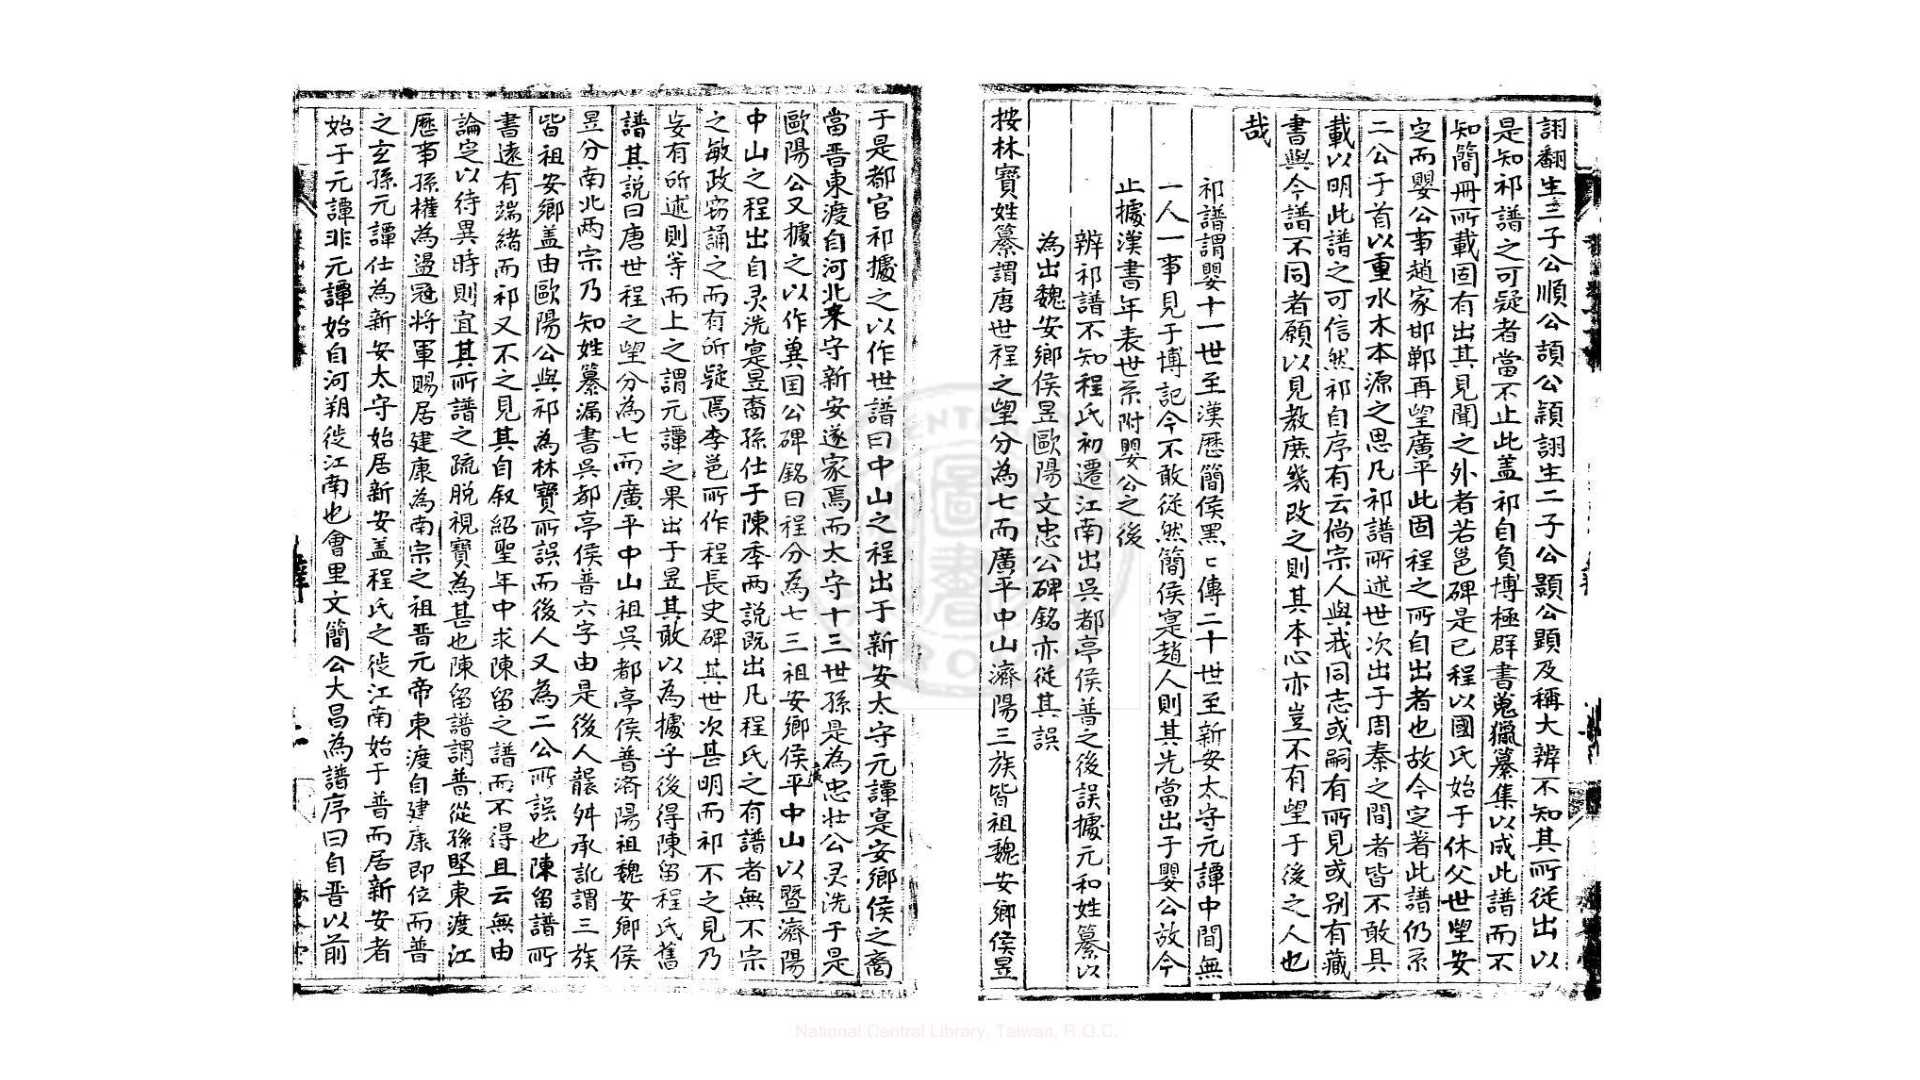 詡翻生三子公順公頡公穎詡生二子公顥公顗及稱大辨不知其所從出以
是知祁譜之可疑者當不止此盖祁自負博極群書蒐獵纂集以成此譜而不
知簡冊所載固有出其見聞之外者若邕碑是已程以國氏始于休父世望安
定而嬰公事趙家邯鄲再望廣平此固程之所自出者也故今定著此譜仍系
二公于首以重水木本源之思凡祁譜所述世次出于周秦之間者皆不敢具
載以明此譜之可信然祁自序有云倘宗人與我同志或嗣有所見或别有藏
書與今譜不同者願以見教庶幾改之則其本心亦豈不有望于後之人也
哉
祁譜謂嬰十一世至漢歷簡侯黑黑傳二十世至新安太守元譚中間無
一人一事見于傳記今不敢從然簡侯寔趙人則其先當出于嬰公故今
止據漢書年表世系附嬰公之後
辨祁譜不知程氏初遷江南出吳都亭侯普之後誤據元和姓纂以
為出魏安鄉侯昱歐陽文忠公碑銘亦從其誤
按林寶姓纂謂唐世程之望分為七而廣平中山濟陽三族皆祖魏安鄉侯昱
于是都官祁據之以作世譜曰中山之程出于新安太守元譚寔安鄉侯之裔
當晋東渡自河北来守新安遂家焉而太守十三世孫是為忠壯公灵洗于是
歐陽公又據之以作兾囯公碑銘曰程分為七三祖安鄉侯廣平中山以暨濟陽
中山之程出自灵洗寔昱裔孫仕于陳季两説既出凡程氏之有譜者無不宗
之敏政窃誦之而有所疑焉李邕所作程長史碑其世次甚明而祁不之見乃
妄有所述則等而上之謂元譚之果出于昱其敢以為據乎後得陳留程氏舊
譜其説曰唐世程之望分為七而廣平中山祖吳都亭侯普济陽祖魏安鄉侯
昱分南北两宗乃知姓纂漏書吳都亭侯普六字由是後人襲舛承訛謂三族
皆祖安鄉盖由歐陽公與祁為林寶所誤而後人又為二公所誤也陳留譜所
書遠有端緒而祁又不之見其自叙紹聖年中求陳留之譜而不得且云無由
論定以待異時則宜其所譜之疏脱視寶為甚也陳留譜謂普從孫堅東渡江
歷事孫權為盪冦將軍賜居建康為南宗之祖晋元帝東渡自建康即位而普
之玄孫元譚仕為新安太守始居新安盖程氏之徙江南始于普而居新安者
始于元譚非元譚始自河朔徙江南也會里文簡公大昌為譜序曰自晋以前
National Central Library, Taiwan, R.O.C.